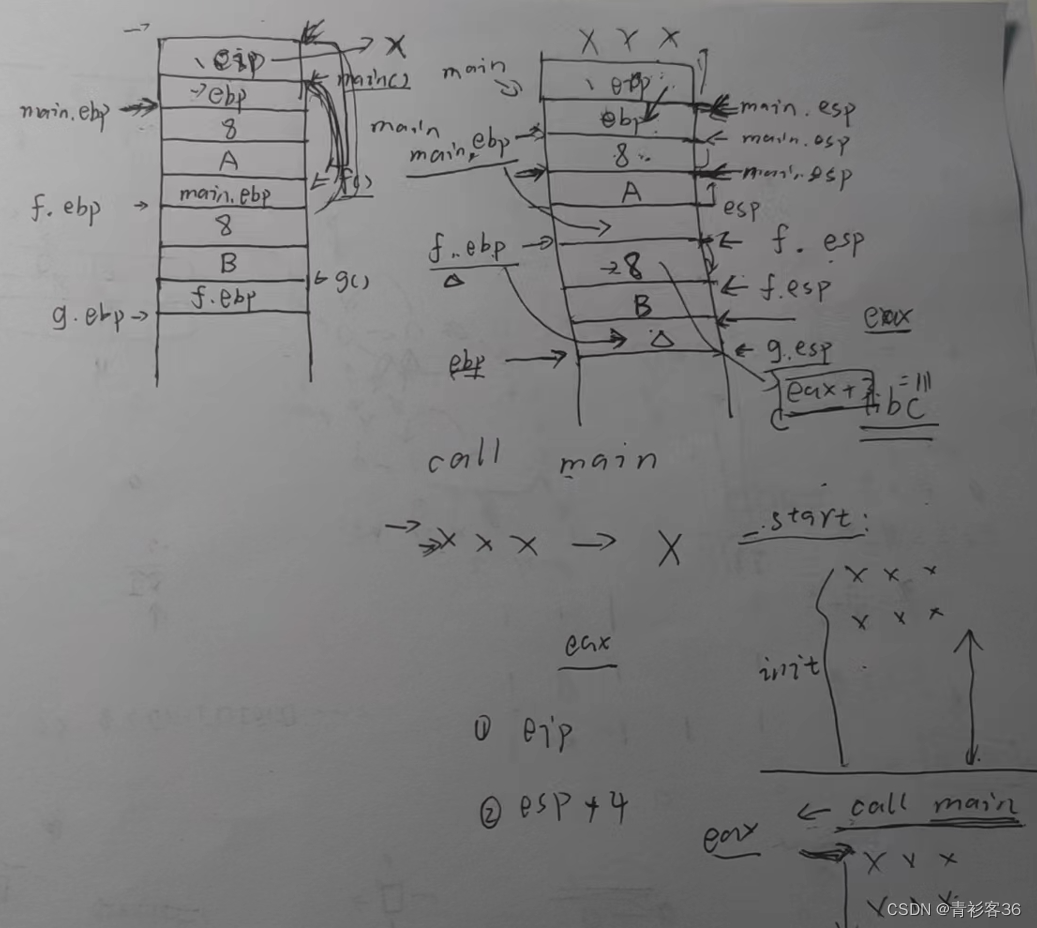 eip
X
main()
ebp
main.ebp
8
A
f()
main.ebp
f.ebp
8
B
g()
f.ebp
g.ebp
X X X
main
ebp
main.esp
ebp
main
main.esp
main.ebp
8
main.esp
A
esp
f.ebp
f. esp
8
f.esp
B
eax
g.esp
ebp
eax+3
call main
X X X → X
_start:
X X X
X X X
init
eax
① eip
② esp + 4
← call main
eax
X X X
X X X
CSDN @青衫客36